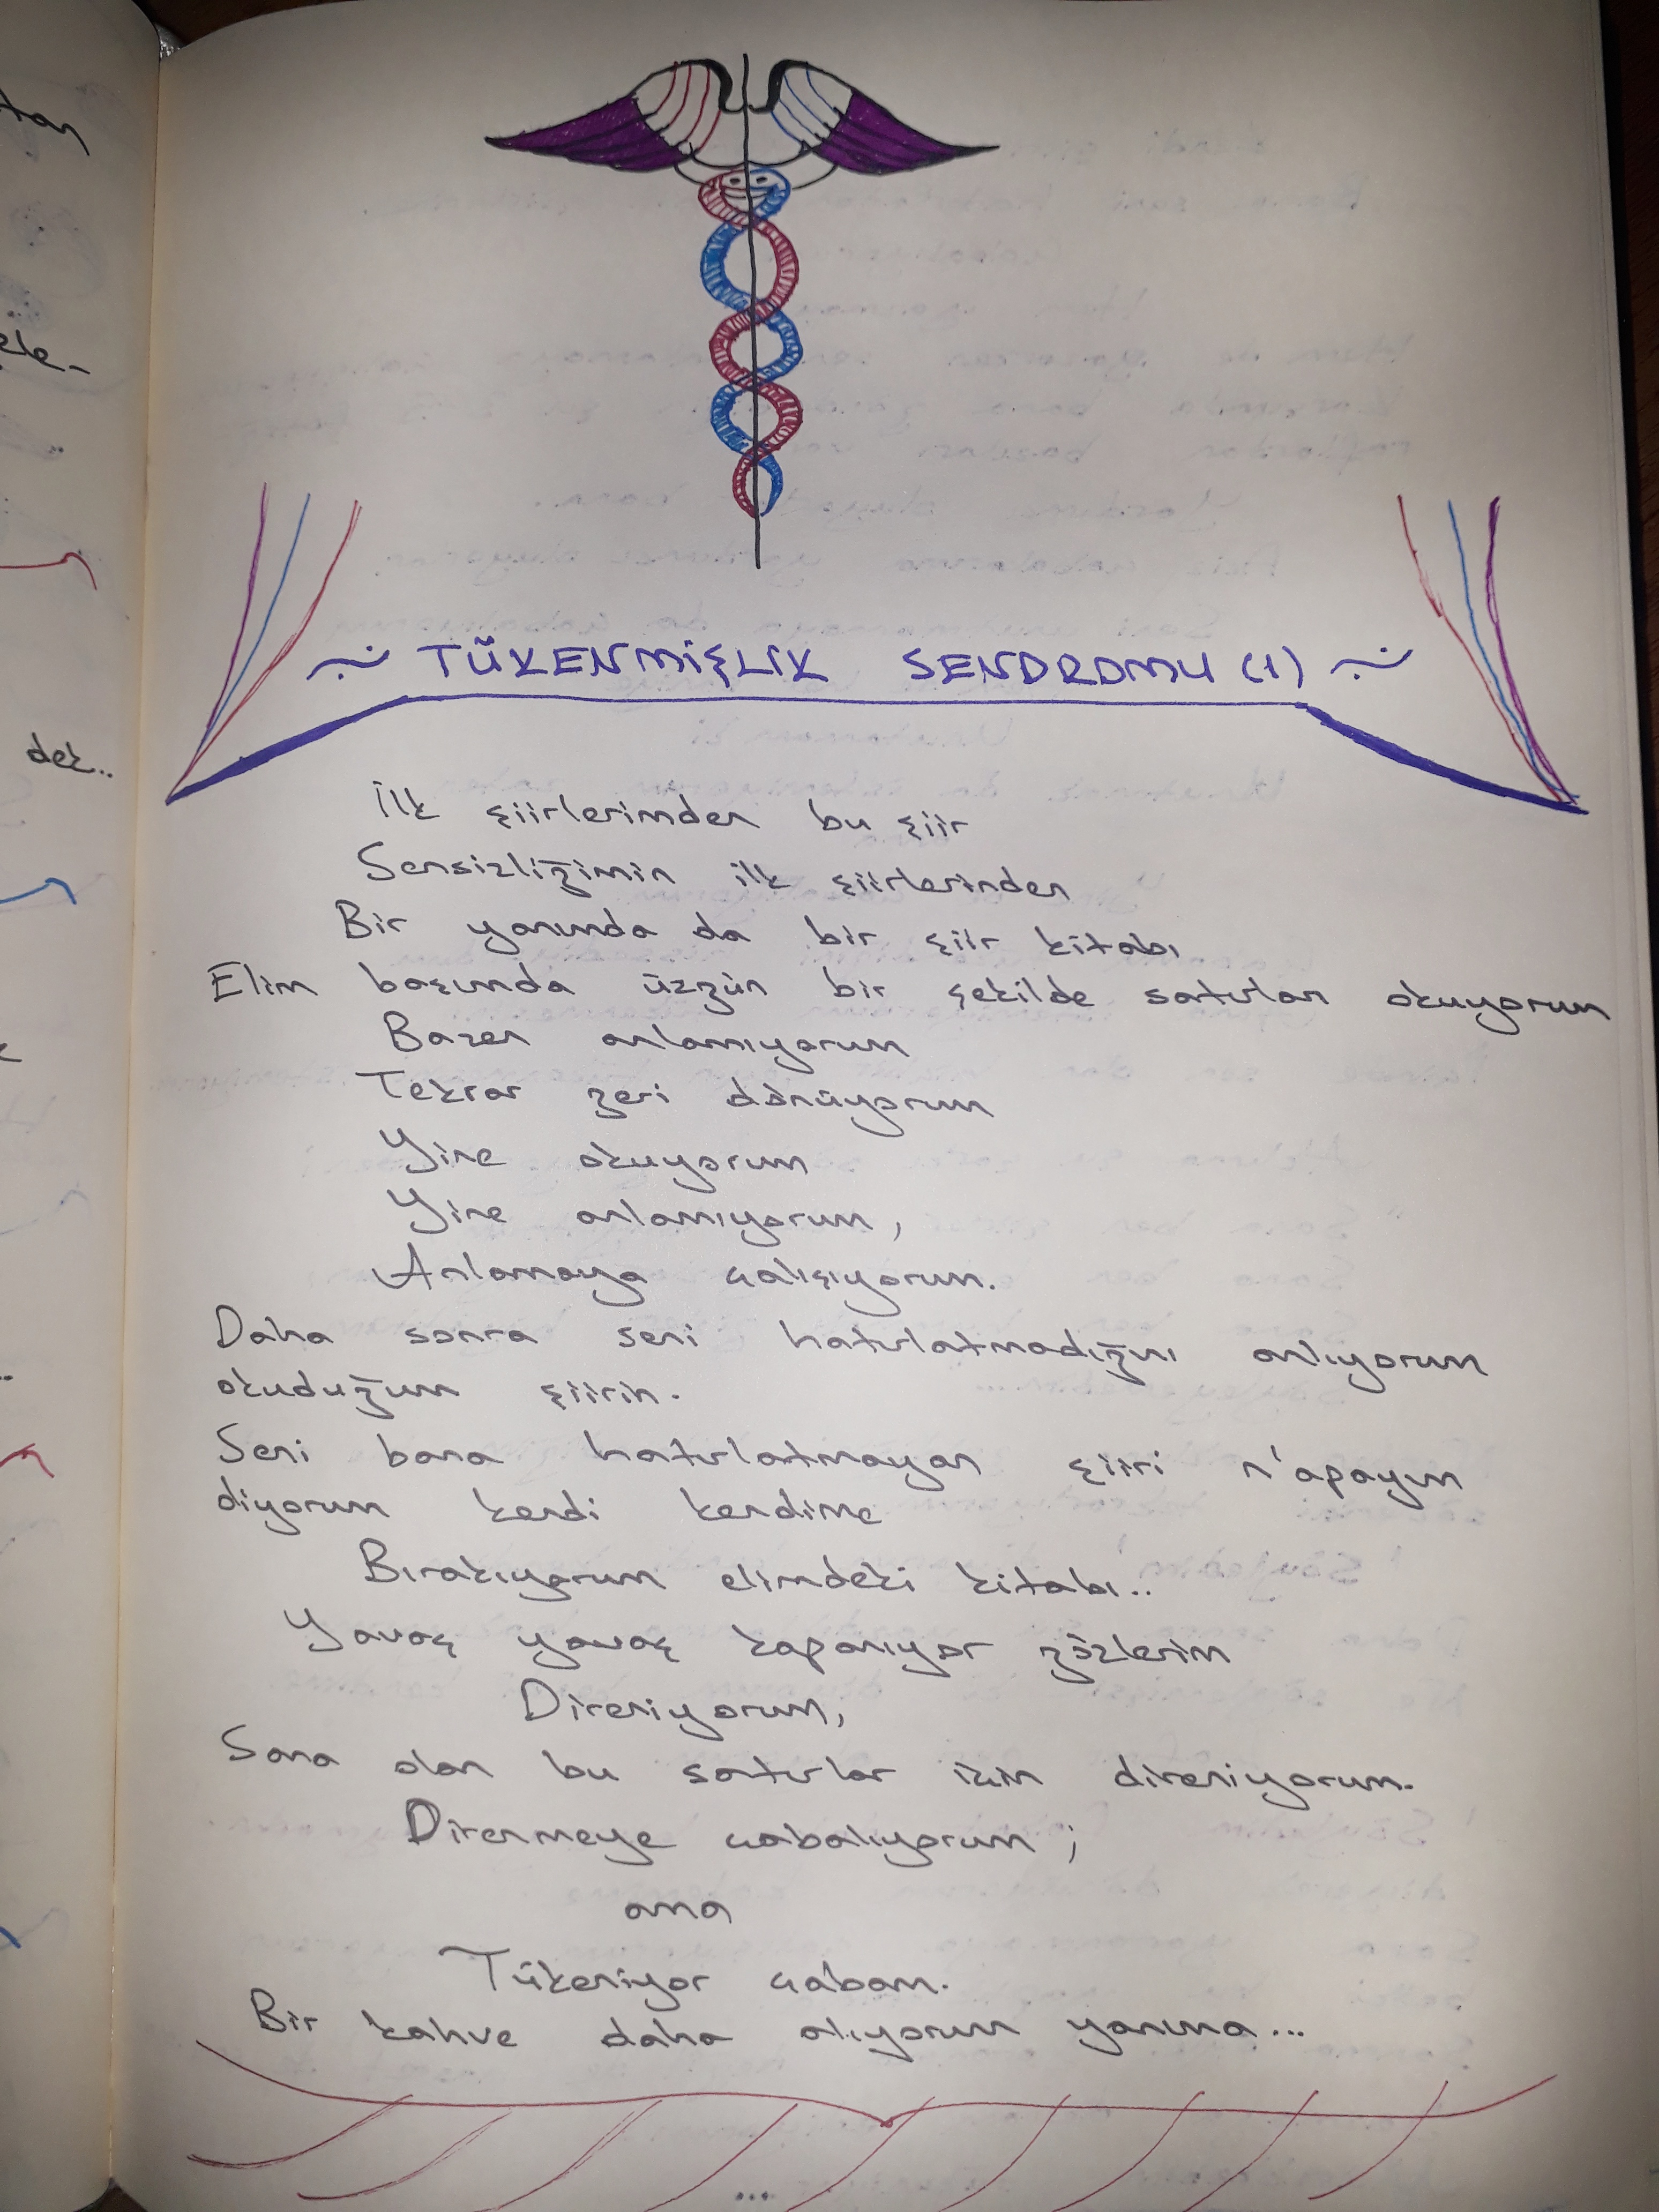 tan
ele-
dek..
~ TÜKENMİŞLİK SENDROMU (1) ~
İlk şiirlerimden bu şiir
Sensizliğimin ilk şiirlerinden
Bir yanımda da bir şiir kitabı
Elim başımda üzgün bir şekilde satırları okuyorum
Bazen anlamıyorum
Tekrar geri dönüyorum
Yine okuyorum
Yine anlamıyorum,
Anlamaya çalışıyorum.
Daha sonra seni hatırlatmadığını anlıyorum
okuduğum şiirin.
Seni bana hatırlatmayan şiiri n'apayım
diyorum kendi kendime
Bırakıyorum elimdeki kitabı..
Yavaş yavaş kapanıyor gözlerim
Direniyorum,
Sana olan bu satırlar için direniyorum.
Direnmeye çabalıyorum;
ama
Tükeniyor çabam.
Bir kahve daha alıyorum yanıma...
...